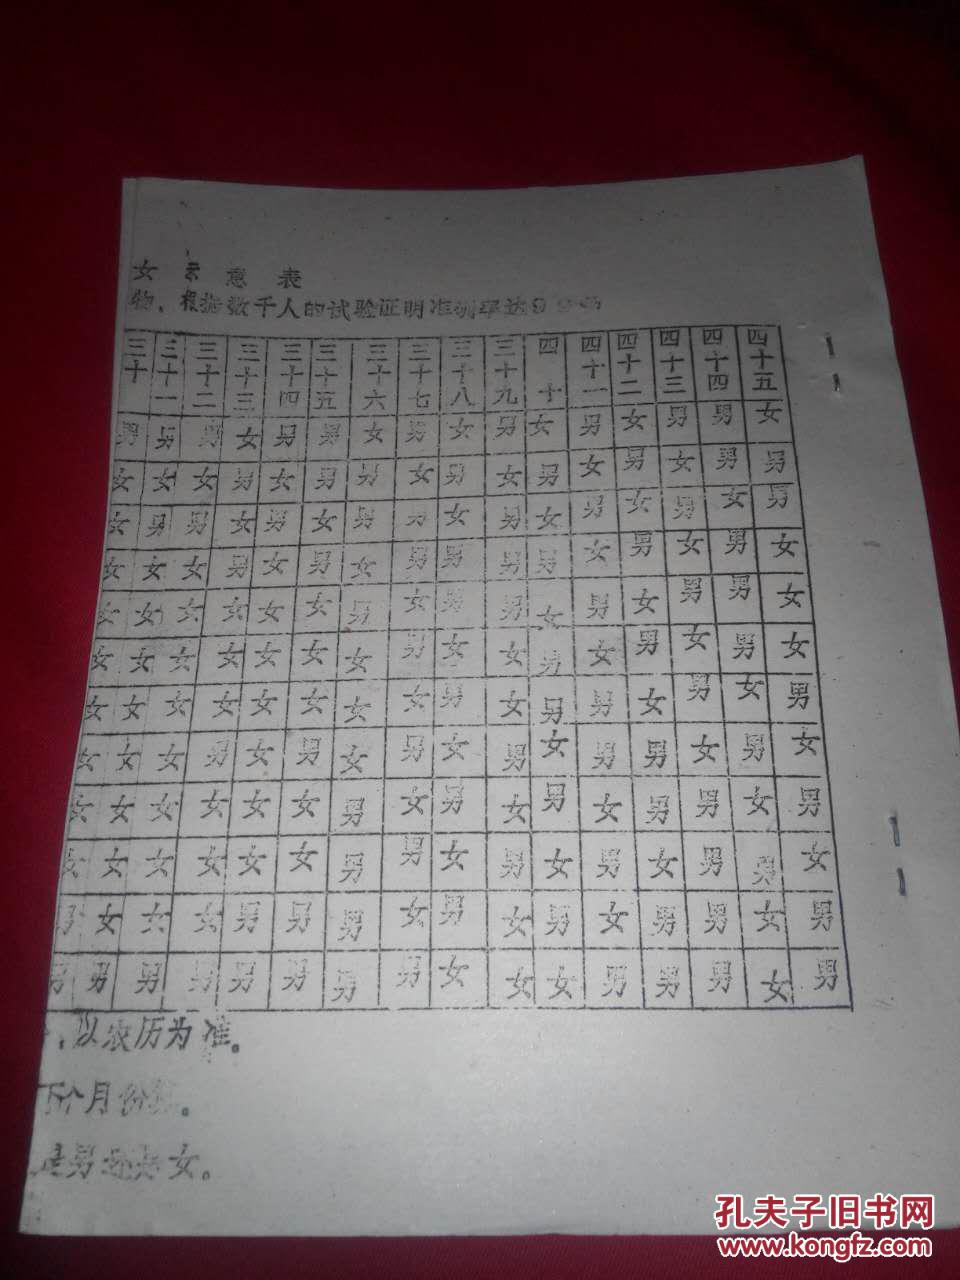 女示意表
物、根据数千人的试验证明准测率达99%
三十 三十一 三十二 三十三 三十四 三十五 三十六 三十七 三十八 三十九 四十 四十一 四十二 四十三 四十四 四十五
男 男 男 女 男 男 女 男 女 男 女 男 女 男 男 女
女 女 女 男 女 男 男 女 男 女 男 女 男 女 男 男
女 男 男 女 男 女 男 男 女 男 女 男 女 男 女 男
女 女 女 男 女 男 女 男 男 男 男 女 男 女 男 女
女 女 女 女 女 女 男 女 男 男 女 男 女 男 男 女
女 女 女 女 女 女 女 男 女 女 男 女 男 女 男 女
女 女 女 女 女 女 女 女 男 女 男 男 女 男 女 男
女 女 女 男 女 男 女 男 女 男 女 男 男 女 男 女
女 女 女 女 女 女 男 女 男 女 男 女 男 男 女 男
女 女 女 女 女 女 男 男 女 男 女 男 女 男 男 女
男 女 女 女 男 男 男 女 男 女 男 女 男 男 女 男
男 男 男 男 男 男 男 男 女 女 女 男 男 男 女 男
，以农历为准。
下个月份
是男还是女。
孔夫子旧书网
www.kongfz.com